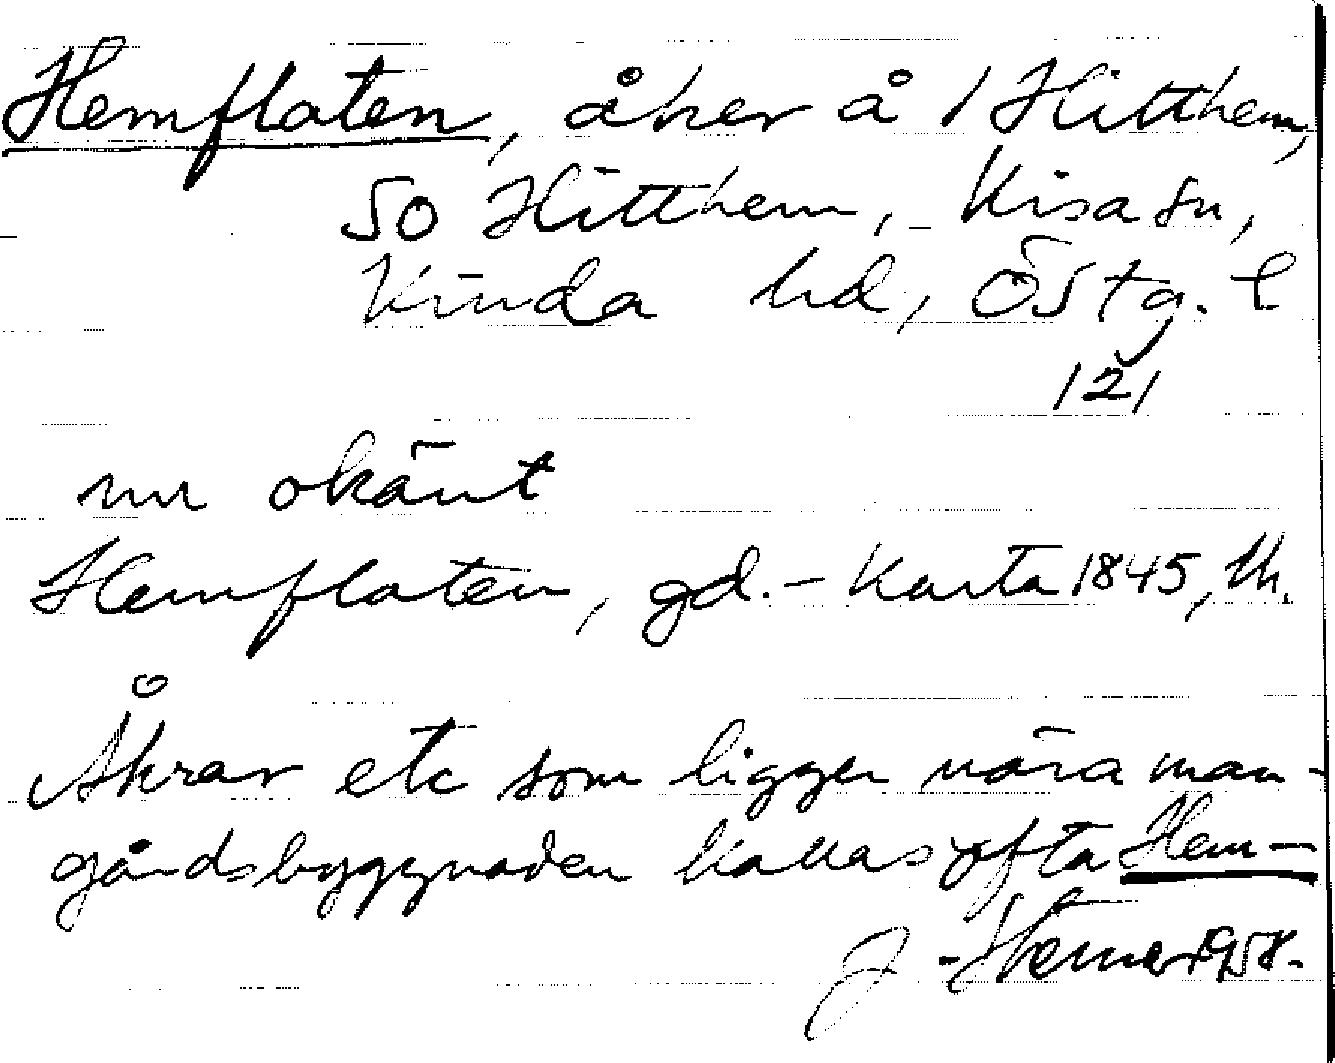 Hemflaten, åker å 1 Hitthem,
SO Hitthem, Kisa sn,
Kinda hd, Östg. l
121
nu okänt
Hemflaten, gd. – Karta 1845,
Åkrar etc som ligger nära man-
gårdsbyggnaden kallas ofta Hem-
1958.